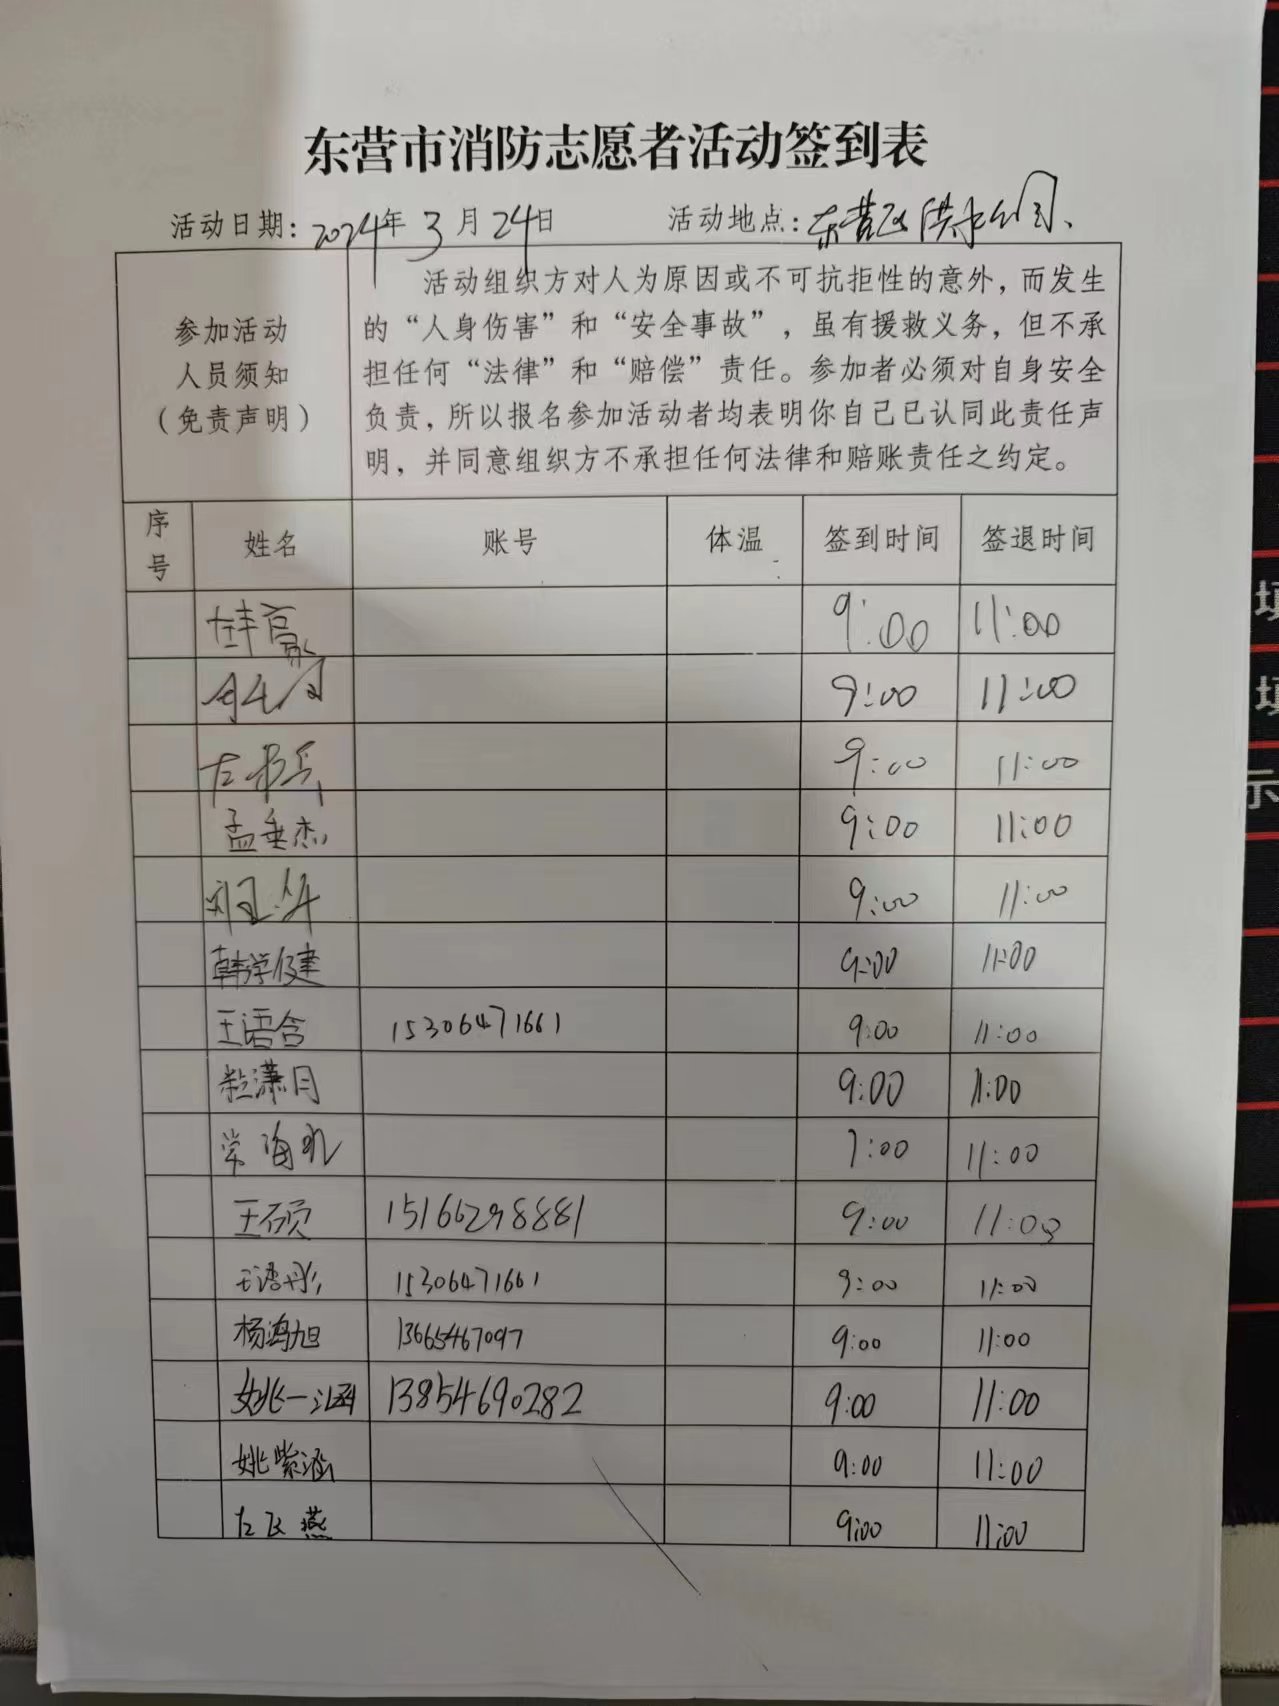 东营市消防志愿者活动签到表
活动日期：2024年3月24日 活动地点：东营区
参加活动
人员须知
（免责声明）
活动组织方对人为原因或不可抗拒性的意外，而发生
的“人身伤害”和“安全事故”，虽有援救义务，但不承
担任何“法律”和“赔偿”责任。参加者必须对自身安全
负责，所以报名参加活动者均表明你自己已认同此责任声
明，并同意组织方不承担任何法律和赔账责任之约定。
序号 姓名 账号 体温 签到时间 签退时间
9:00 11:00
9:00 11:00
9:00 11:00
孟垂杰 9:00 11:00
9:00 11:00
韩学健 9:00 11:00
王语含 15306471661 9:00 11:00
潇月 9:00 11:00
常海 9:00 11:00
王硕 15166298881 9:00 11:00
王语彤 15306471661 9:00 11:00
杨鸿旭 13665467097 9:00 11:00
姚一涵 13854690282 9:00 11:00
姚紫涵 9:00 11:00
左飞燕 9:00 11:00
填
填
示